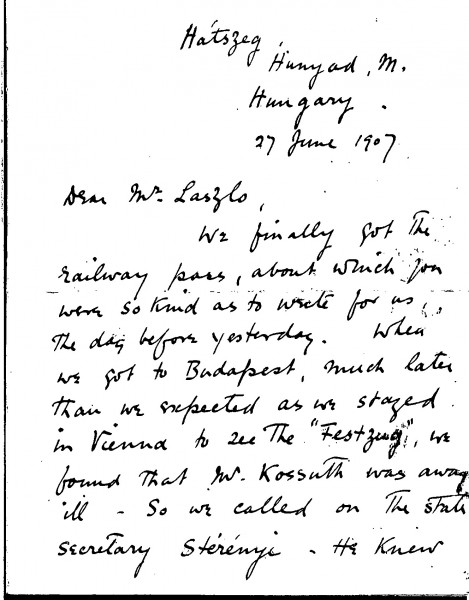 Hátszeg,
Hunyad, M.
Hungary.
27 June 1907
Dear Mr. Laszlo,
We finally got the
railway pass, about which you
were so kind as to write for us,
the day before yesterday. When
we got to Budapest, much later
than we expected as we stayed
in Vienna to see the "Festzug", we
found that Mr. Kossuth was away
ill - So we called on the state
secretary Stérényi - He knew